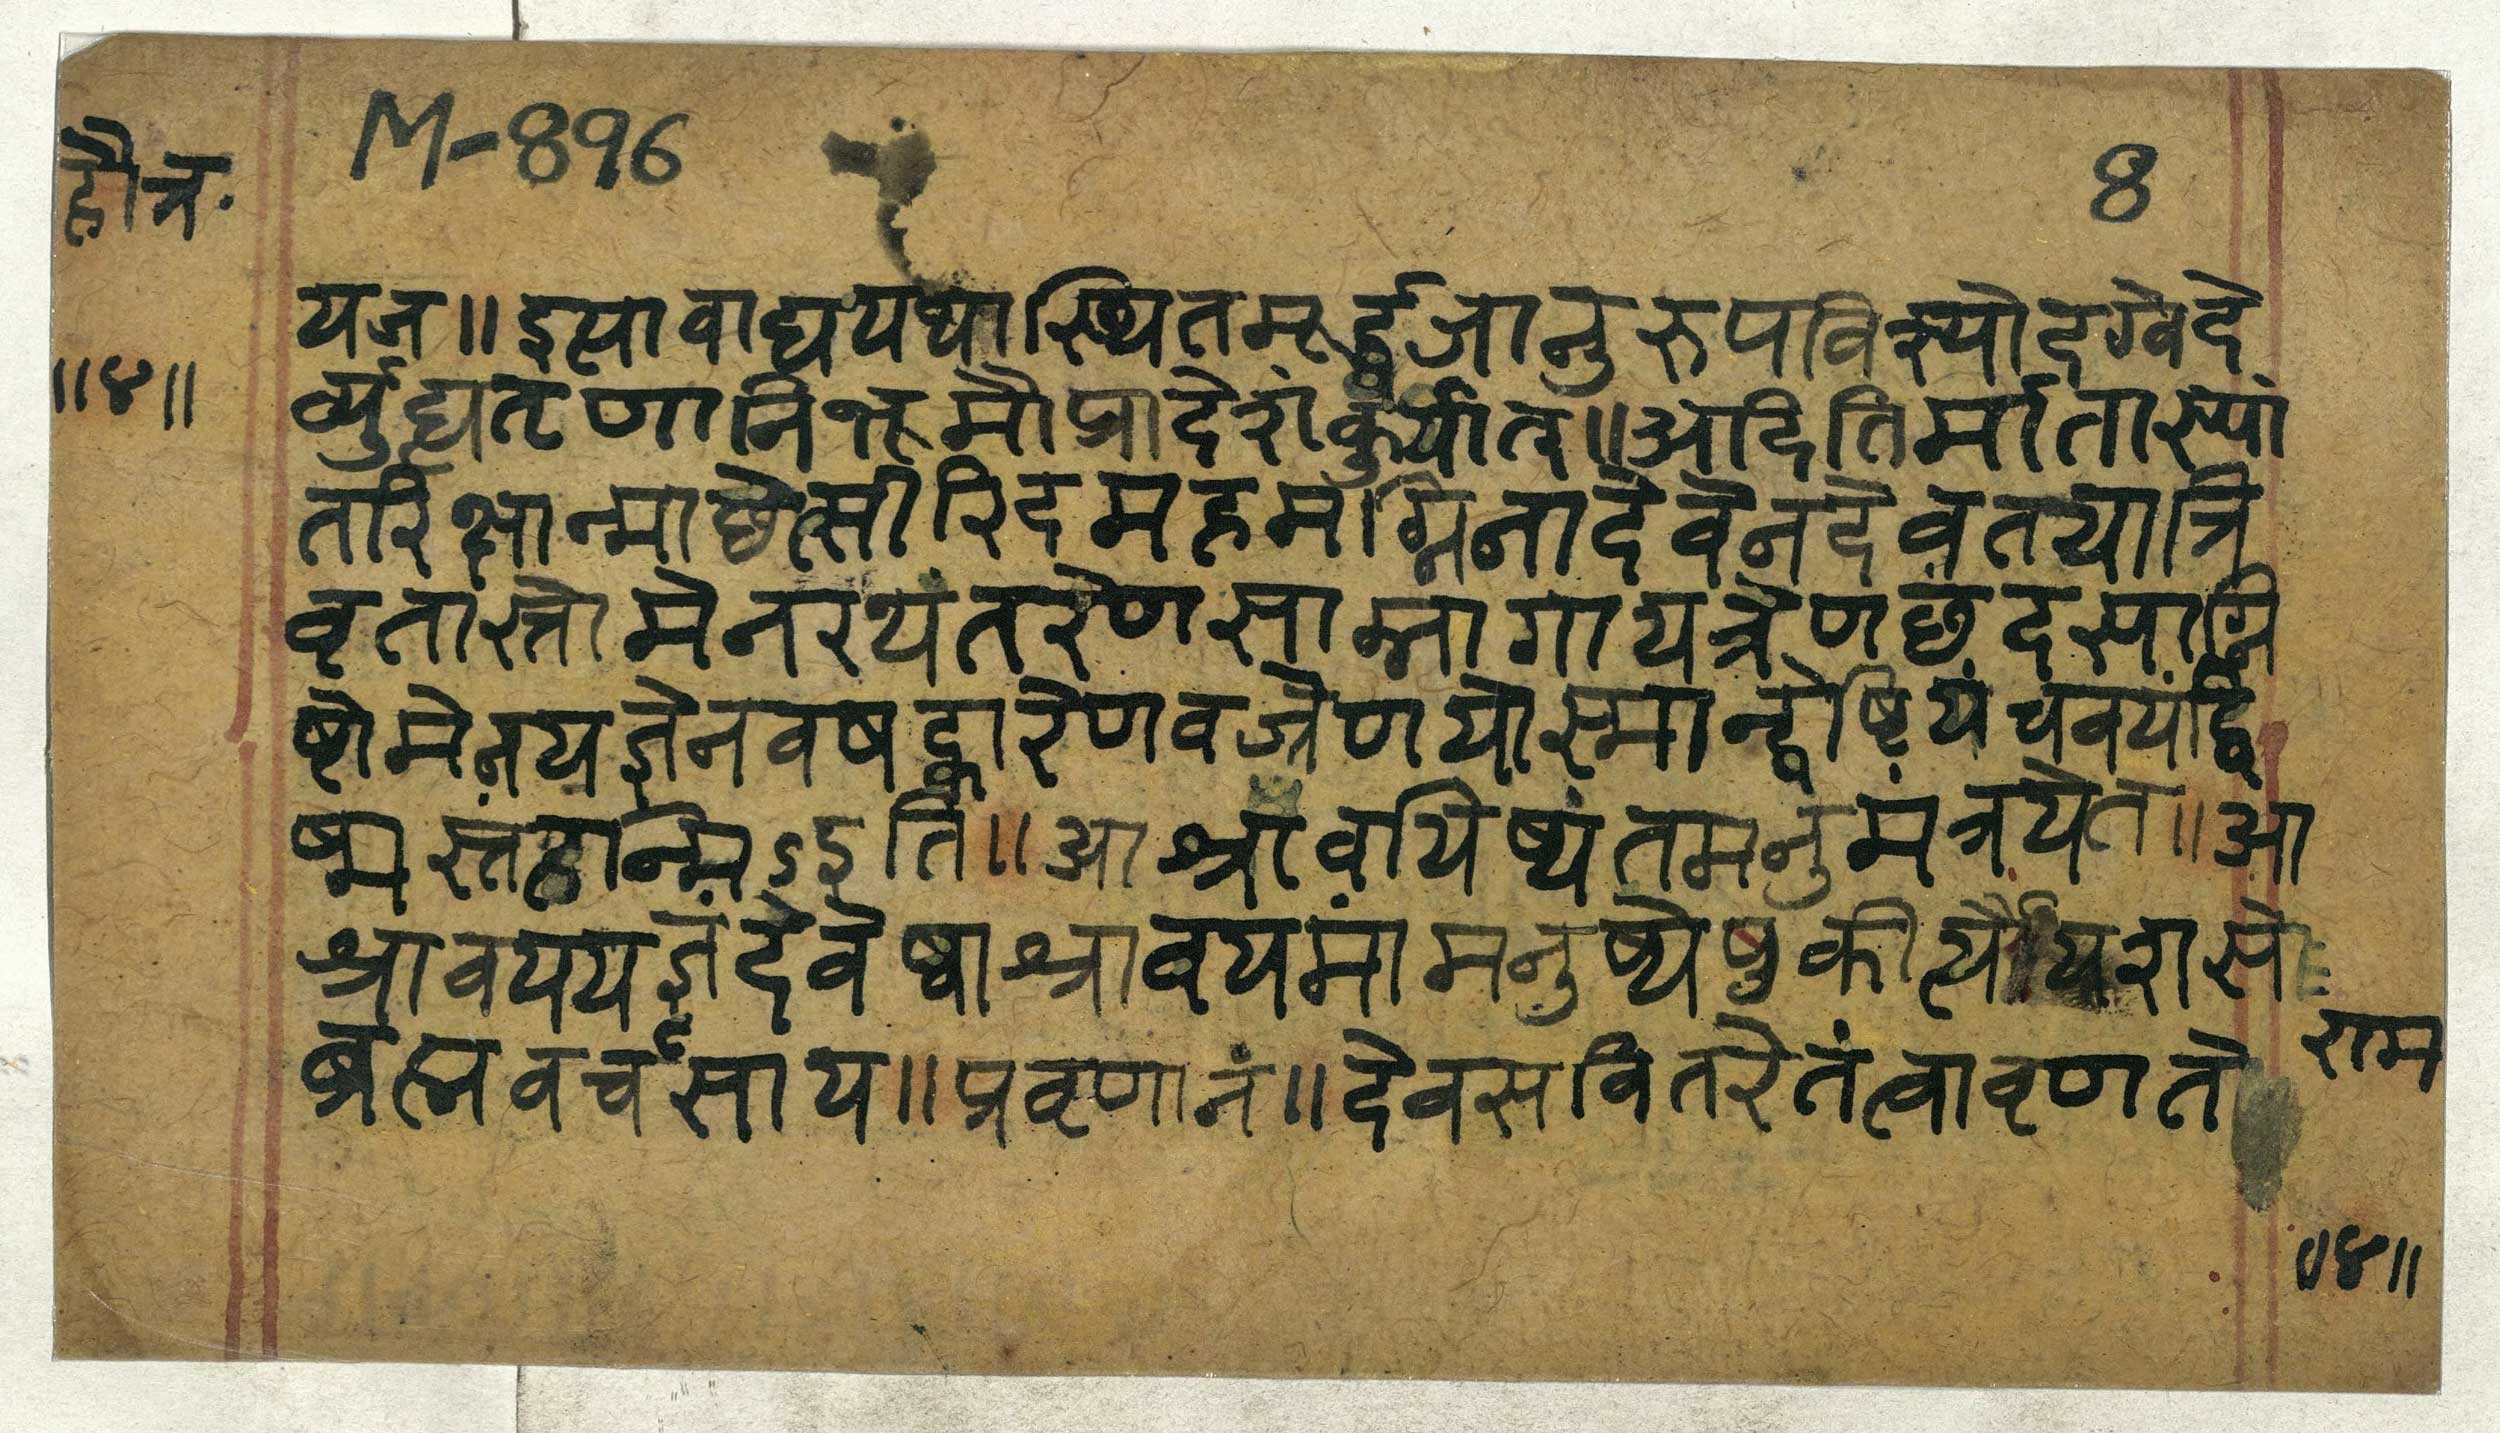 M-896
8
हौत्र॰
॥४॥
यज॥इत्यावाद्ययथास्थितमूर्द्ध्वजानुरुपविश्योदग्वेदे
र्व्युद्यतृणानिभूमौप्रादेशंकुर्यात्॥अदितिर्मातास्यां
तरिक्षान्माछेत्सीरिदमहमग्निनादेवेनदेवतयात्रि
वृतास्तोमेनरथंतरेणसाम्नागायत्रेणछंदसाग्नि
ष्टोमेनयज्ञेनवषट्कारेणवज्रेणयोस्मान्द्वेष्टियंचवयंद्वि
ष्मस्तंहान्मिऽइति॥आश्रावयिष्यंतमनुमंत्रयेत॥आ
श्रावययज्ञंदेवेष्वाश्रावयमांमनुष्येषुकीर्त्यैयशसे
ब्रह्मवर्चसाय॥प्रवृणानं॥देवसवितरेतंत्वावृणते
राम
॥४॥